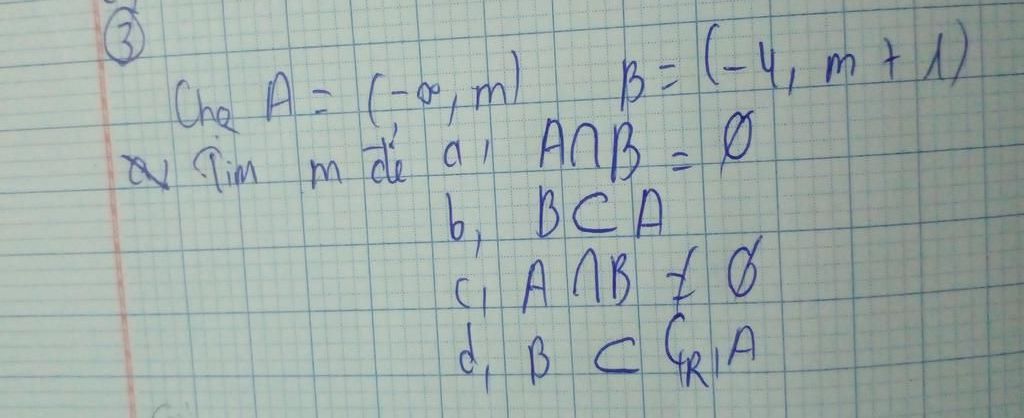 ③
Cho A = (-∞, m) B = (-4, m + 1)
Tìm m để a, A∩B = Ø
b, B ⊂ A
c, A ∩B ≠ Ø
d, B ⊂ C_R A